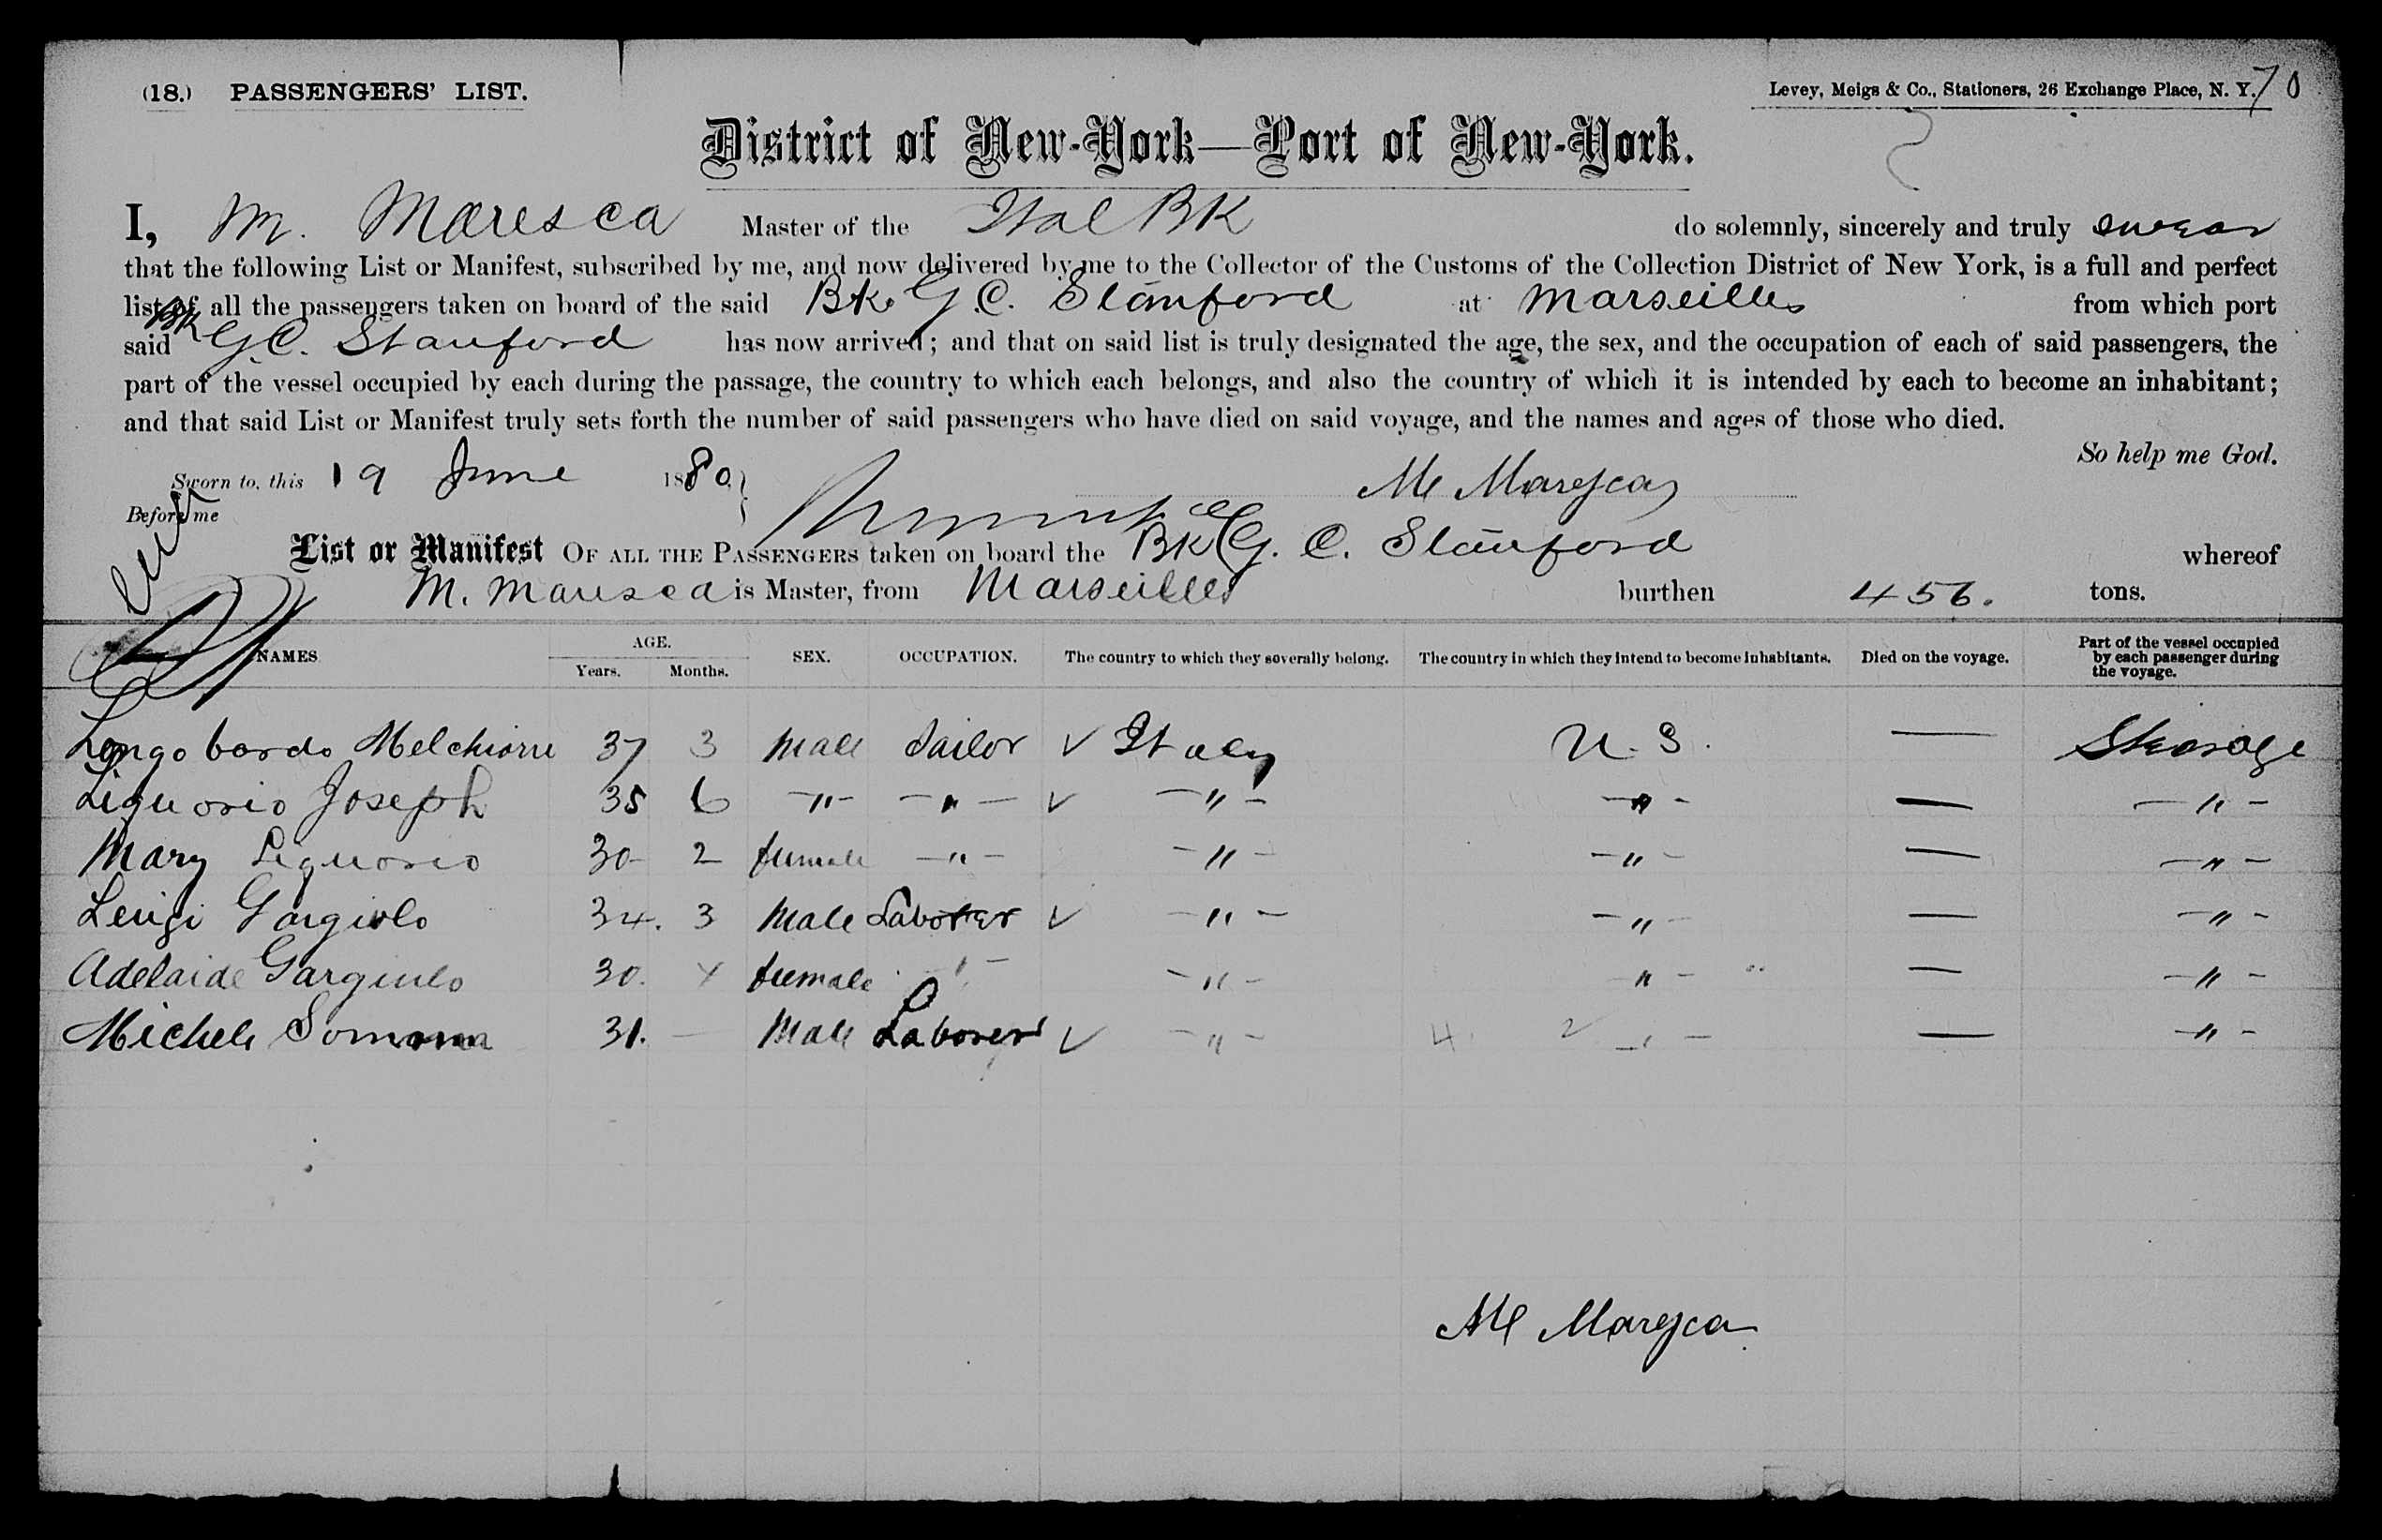 (18.) PASSENGERS' LIST.
Levey, Meigs & Co., Stationers, 26 Exchange Place, N. Y. 70
District of New-York—Port of New-York.
I, M. Maresca Master of the Ital BK do solemnly, sincerely and truly swear
that the following List or Manifest, subscribed by me, and now delivered by me to the Collector of the Customs of the Collection District of New York, is a full and perfect
list of all the passengers taken on board of the said Bk. G. C. Stanford at Marseilles from which port
said BK G. C. Stanford has now arrived; and that on said list is truly designated the age, the sex, and the occupation of each of said passengers, the
part of the vessel occupied by each during the passage, the country to which each belongs, and also the country of which it is intended by each to become an inhabitant;
and that said List or Manifest truly sets forth the number of said passengers who have died on said voyage, and the names and ages of those who died.
So help me God.
Sworn to, this 19 June 1880 } M Maresca
Before me
List or Manifest OF ALL THE PASSENGERS taken on board the BK G. C. Stanford whereof
M. Maresca is Master, from Marseilles burthen 456. tons.
NAMES AGE. Years. Months. SEX. OCCUPATION. The country to which they severally belong. The country in which they intend to become inhabitants. Died on the voyage. Part of the vessel occupied by each passenger during the voyage.
Longobardo Melchiorre 37 3 Male Sailor ✓ Italy U. S. — Steerage
Liguorio Joseph 35 6 -"- -"- ✓ -"- -"- — -"-
Mary Liguorio 30 2 female -"- -"- -"- — -"-
Leuigi Gargiulo 34. 3 Male Laborer ✓ -"- -"- — -"-
Adelaide Gargiulo 30. 4 female -"- -"- -"- — -"-
Michele Somma 31. — Male Laborer ✓ -"- 4. 2 -"- — -"-
M Maresca